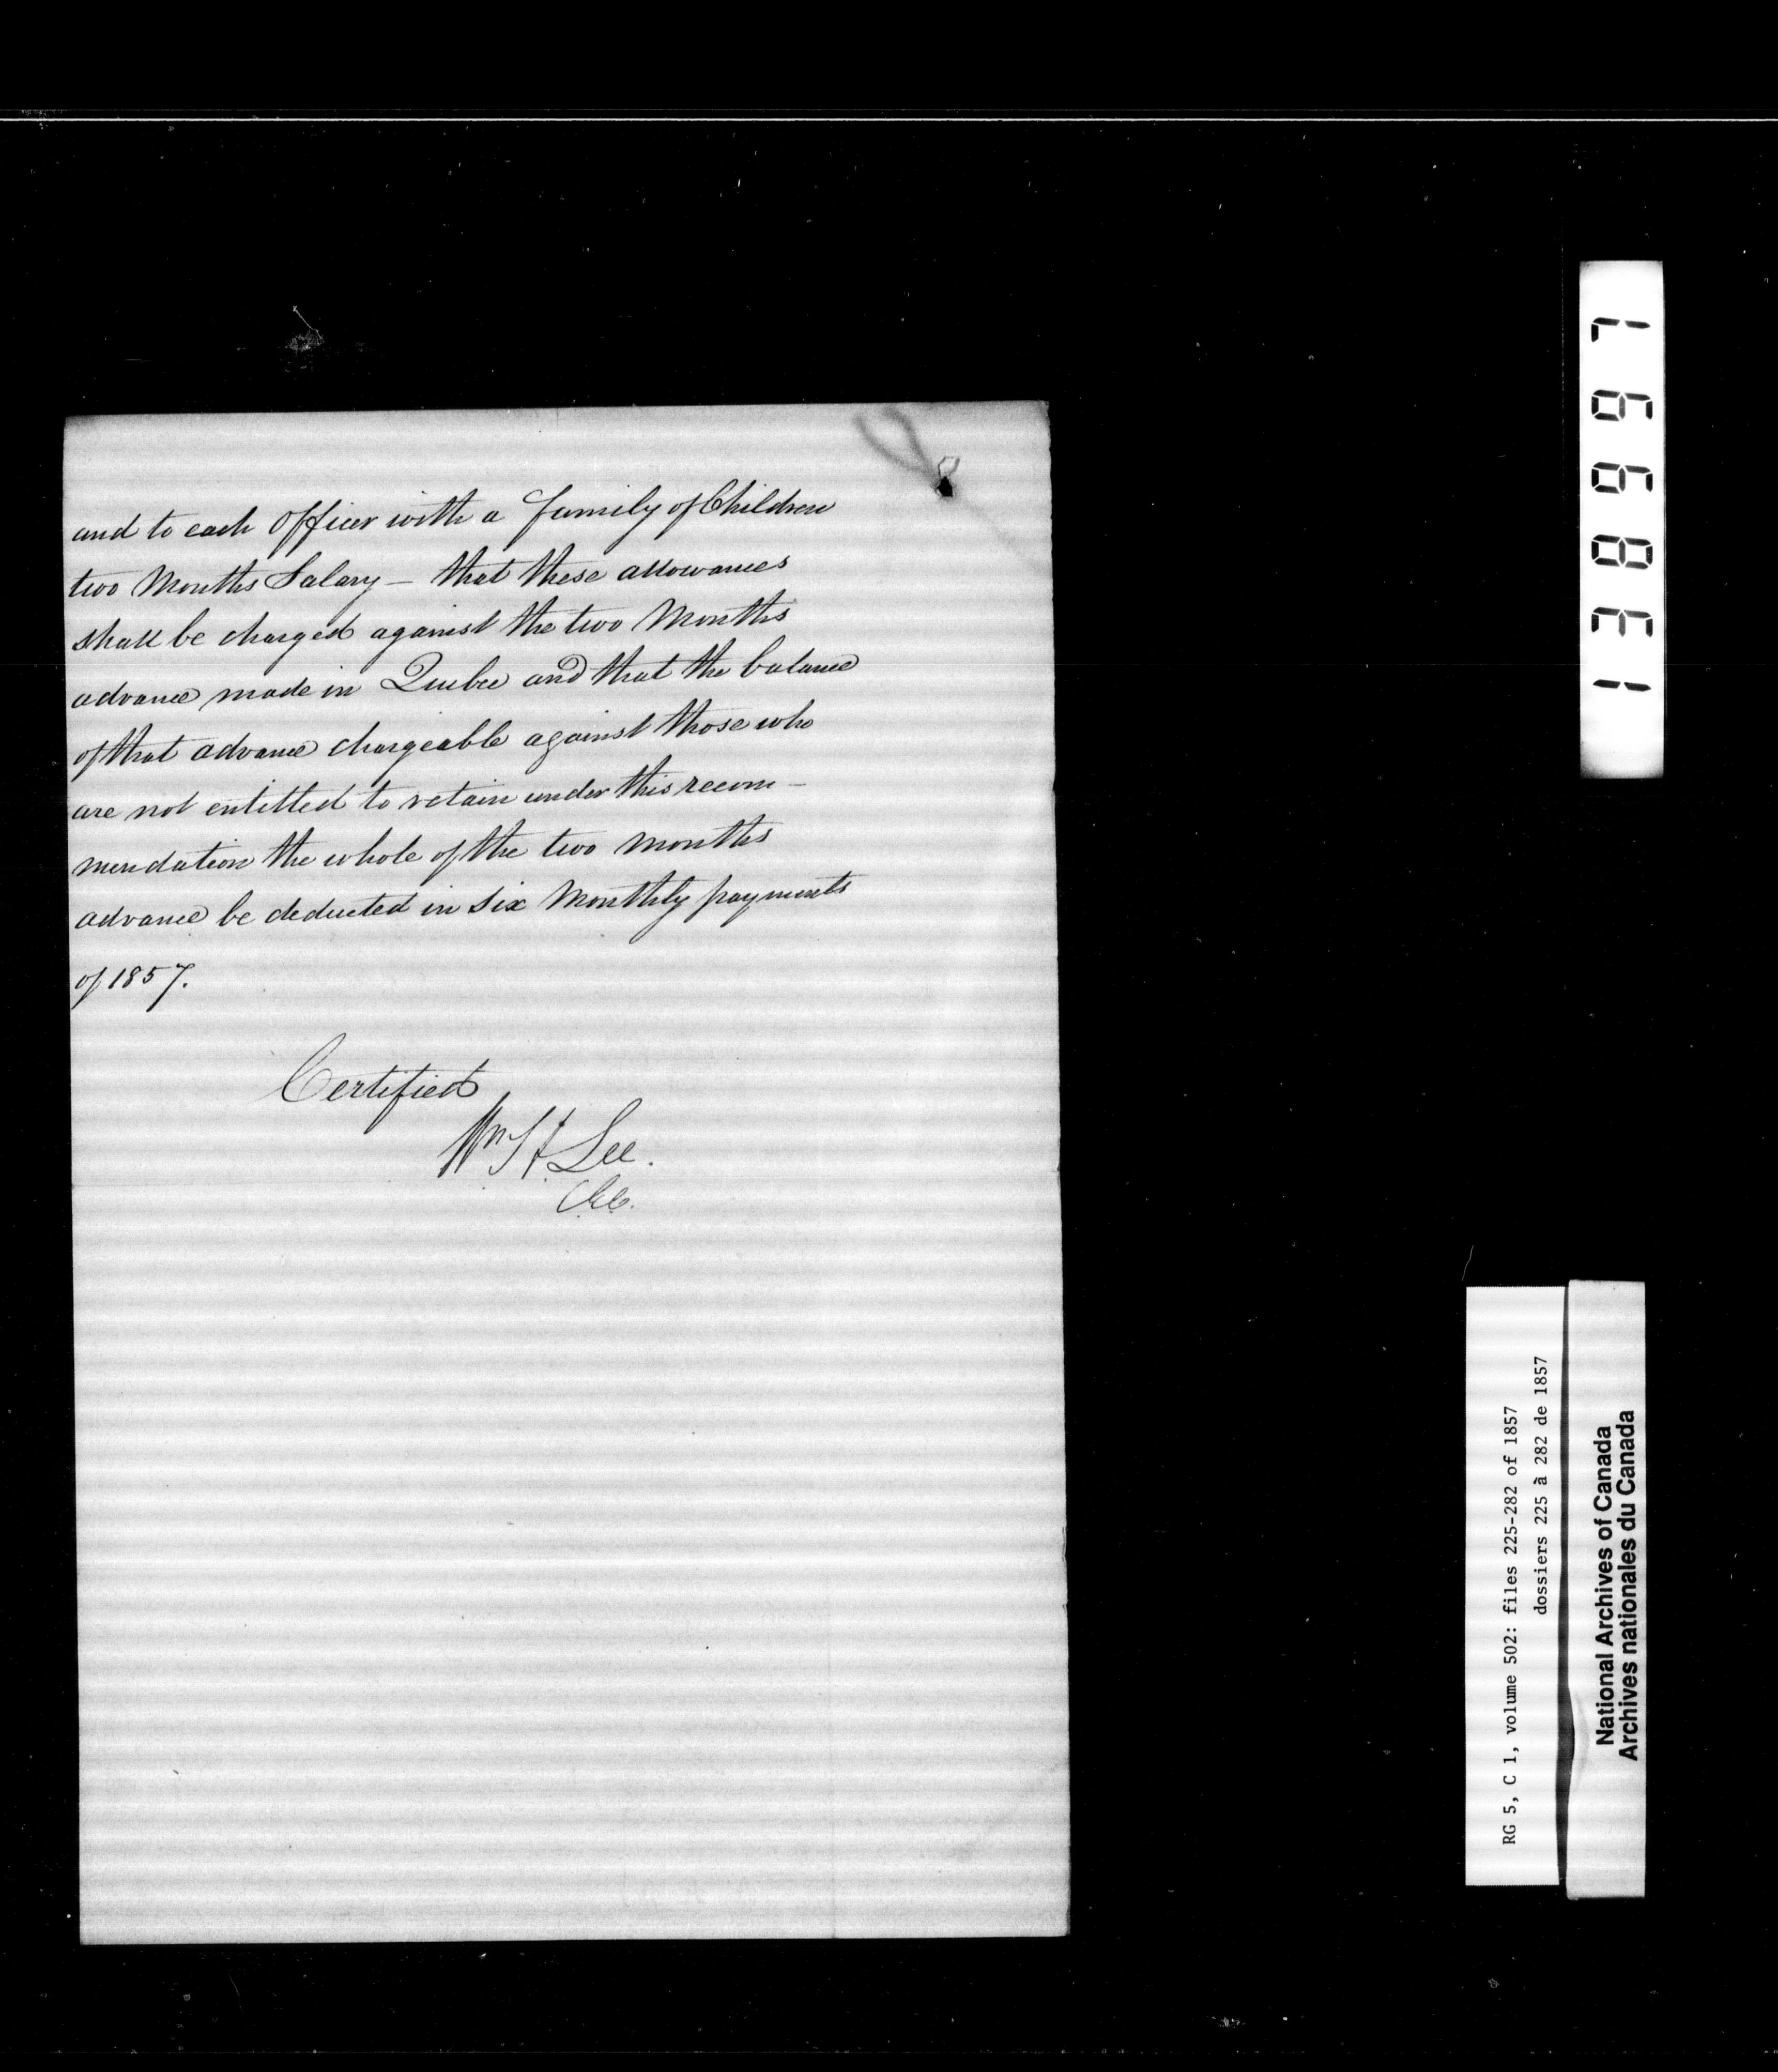 and to each Officer with a family of Children
two Months Salary — that these allowances
shall be charged against the two Months
advance made in Quebec and that the balance
of that advance chargeable against those who
are not entitled to retain under this recom-
mendation the whole of the two months
advance be deducted in six Monthly payments
of 1857.
Certified
Wm H Lee.
138997
RG 5, C 1, volume 502: files 225-282 of 1857
dossiers 225 à 282 de 1857
National Archives of Canada
Archives nationales du Canada